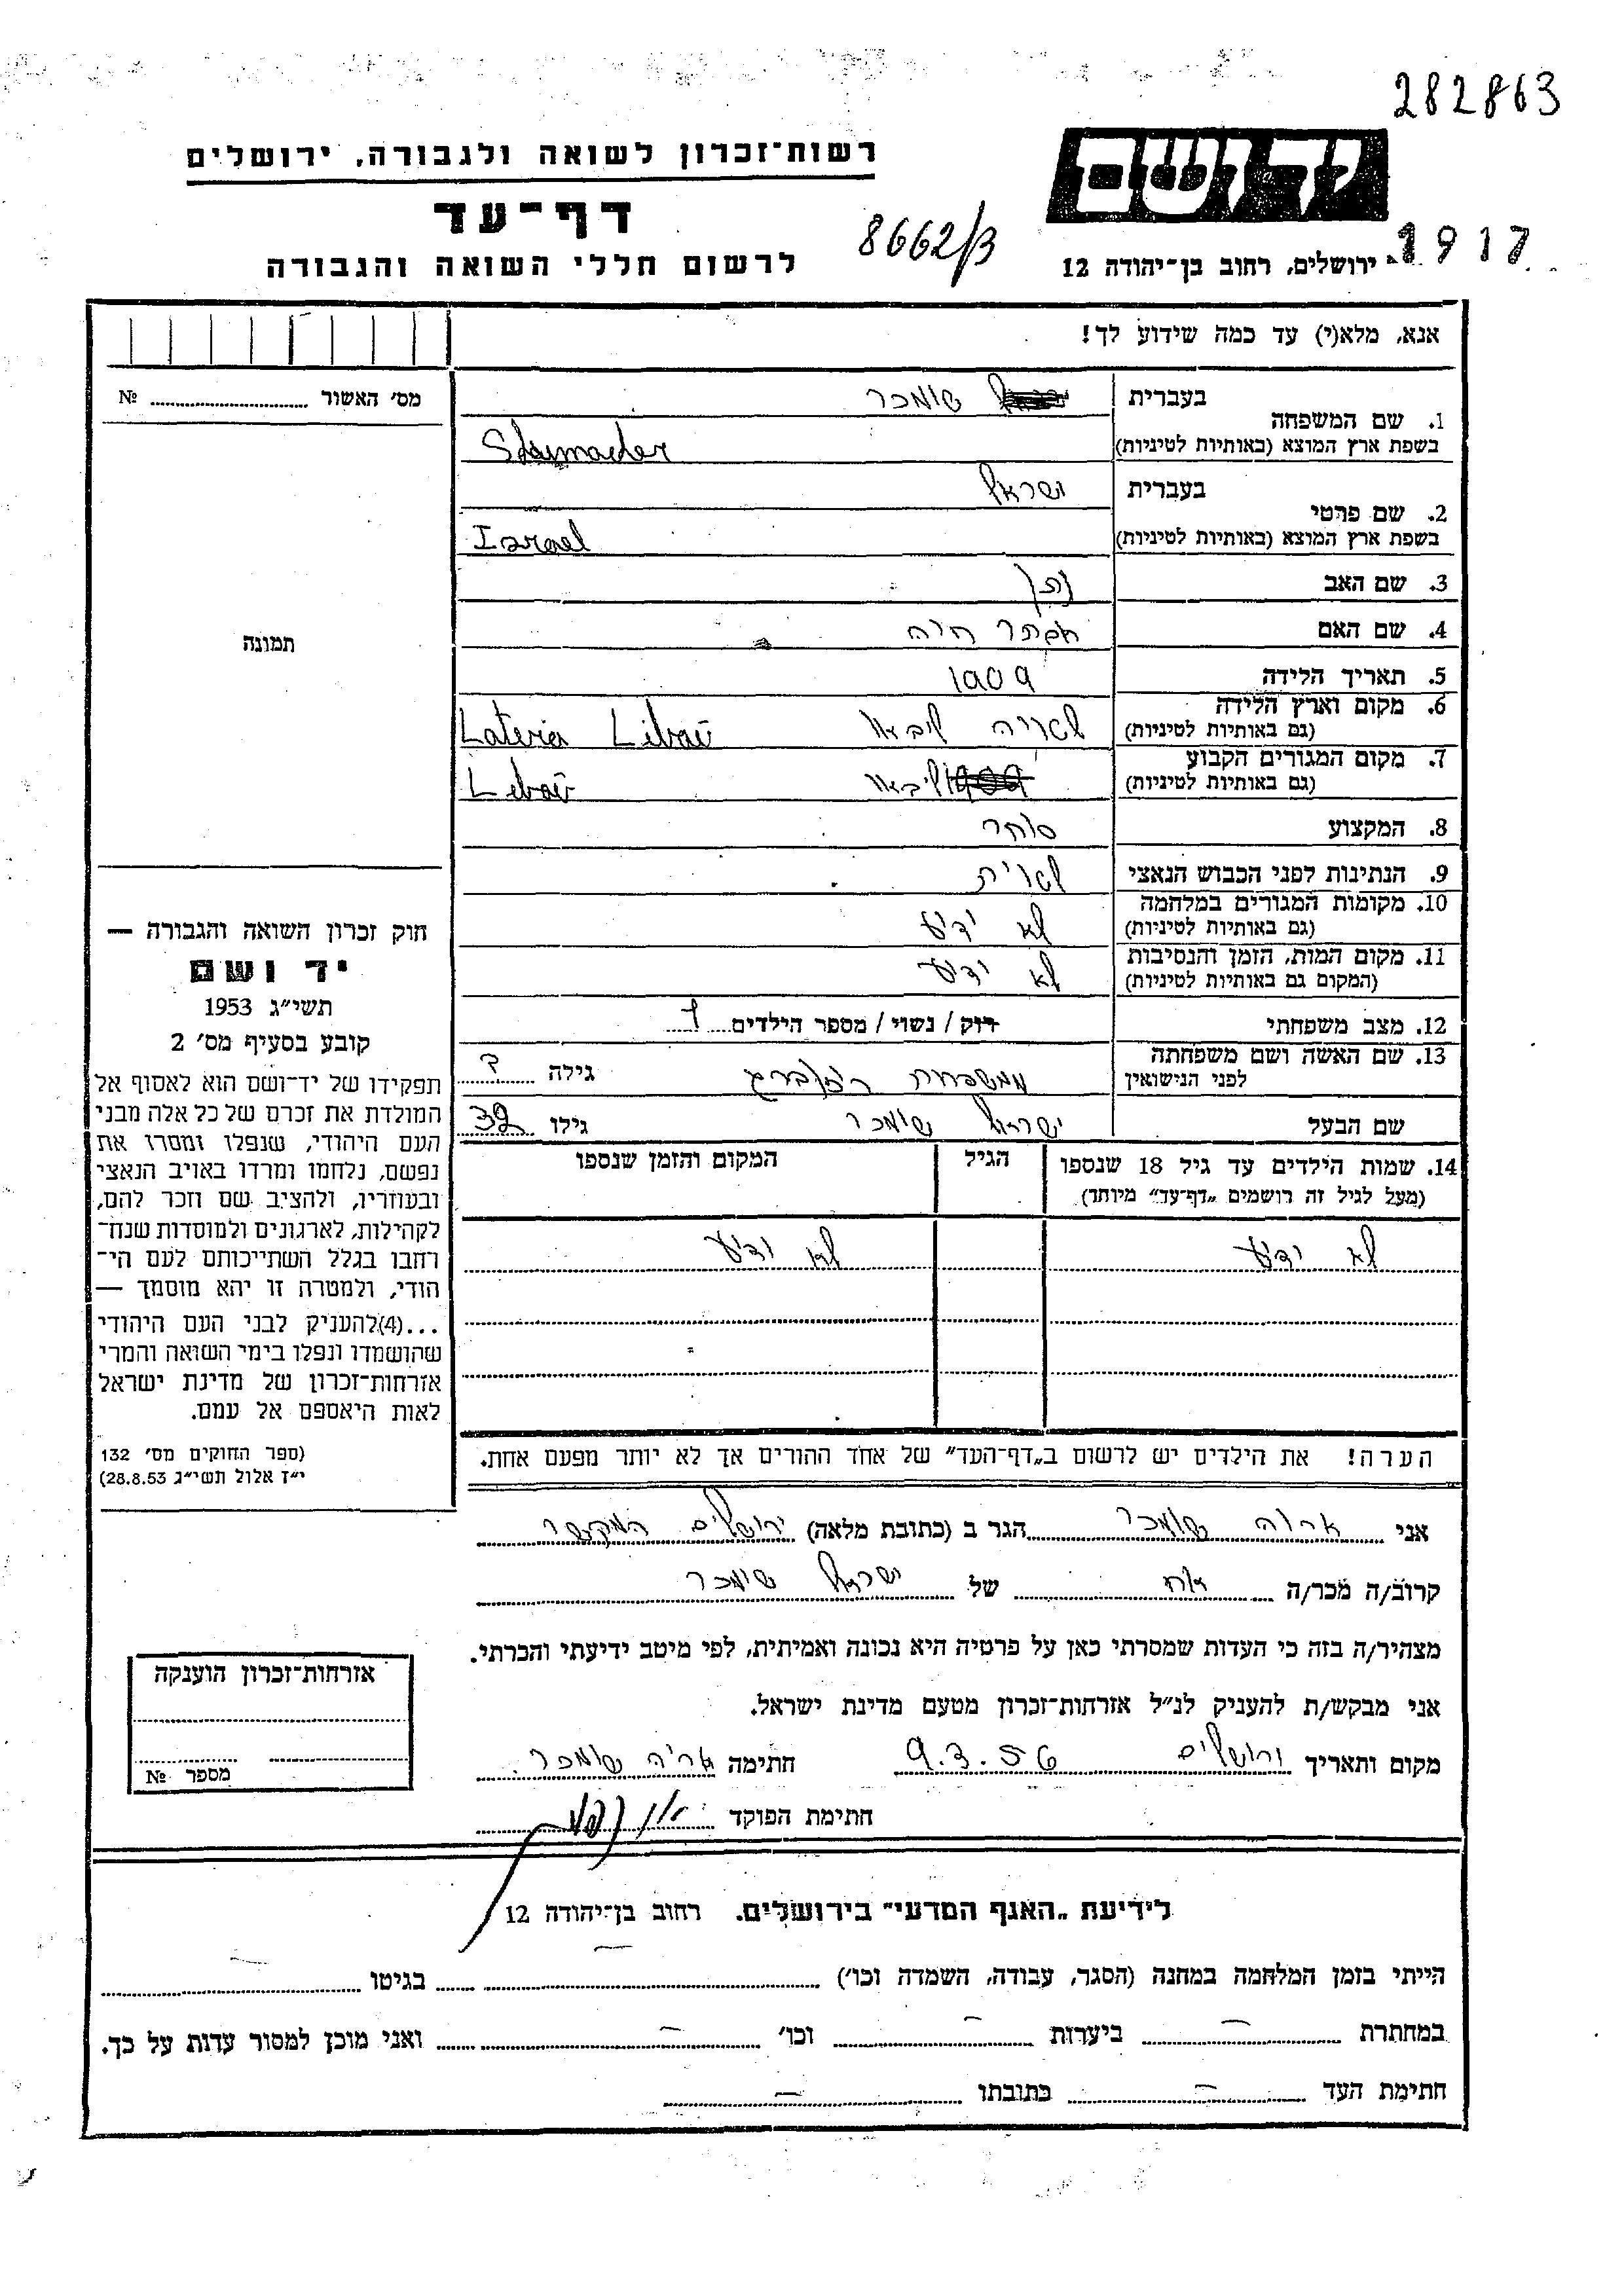 282863
יד ושם
רשות־זכרון לשואה ולגבורה, ירושלים
דף־עד
לרשום חללי השואה והגבורה
8662/3
1917
ירושלים, רחוב בן־יהודה 12
אנא, מלא(י) עד כמה שידוע לך!
מס' האשור № 
1. שם המשפחה
בעברית שומכר
בשפת ארץ המוצא (באותיות לטיניות) Shumacher
2. שם פרטי
בעברית ישראל
בשפת ארץ המוצא (באותיות לטיניות) Israel
3. שם האב נתן
4. שם האם אסתר חיה
5. תאריך הלידה 1909
6. מקום וארץ הלידה
(גם באותיות לטיניות) לטויה ליבאו Lateria Libaü
7. מקום המגורים הקבוע
(גם באותיות לטיניות) ליבאו Libaü
8. המקצוע סוחר
9. הנתינות לפני הכבוש הנאצי לטוית
10. מקומות המגורים במלחמה
(גם באותיות לטיניות) לא ידיע
11. מקום המות, הזמן והנסיבות
(המקום גם באותיות לטיניות) לא ידיע
12. מצב משפחתי רוק / נשוי / מספר הילדים 1
13. שם האשה ושם משפחתה
לפני הנישואין ממשפחת גילה ?
שם הבעל ישראל שומכר גילו 32
14. שמות הילדים עד גיל 18 שנספו
(מעל לגיל זה רושמים „דף־עד" מיוחד)
הגיל
המקום והזמן שנספו
לא ידיע לא ידיע
הערה! את הילדים יש לרשום ב„דף־העד" של אחד ההורים אך לא יותר מפעם אחת.
תמונה
חוק זכרון השואה והגבורה —
יד ושם
תשי"ג 1953
קובע בסעיף מס' 2
תפקידו של יד־ושם הוא לאסוף אל
המולדת את זכרם של כל אלה מבני
העם היהודי, שנפלו ומסרו את
נפשם, נלחמו ומרדו באויב הנאצי
ובעוזריו, ולהציב שם וזכר להם,
לקהילות, לארגונים ולמוסדות שנח־
רבו בגלל השתייכותם לעם הי־
הודי, ולמטרה זו יהא מוסמך —
...(4)להעניק לבני העם היהודי
שהושמדו ונפלו בימי השואה והמרי
אזרחות־זכרון של מדינת ישראל
לאות היאספם אל עמם.
(ספר החוקים מס' 132
י"ז אלול תשי"ג 28.8.53)
אני אריה שומכר הגר ב (כתובת מלאה) ירושלים
קרוב/ה מכר/ה אח של ישראל שומכר
מצהיר/ה בזה כי העדות שמסרתי כאן על פרטיה היא נכונה ואמיתית, לפי מיטב ידיעתי והכרתי.
אני מבקש/ת להעניק לנ"ל אזרחות־זכרון מטעם מדינת ישראל.
מקום ותאריך ירושלים 9.3.56 חתימה אריה שומכר
חתימת הפוקד
אזרחות־זכרון הוענקה
מספר №
לידיעת „האגף המדעי" בירושלים. רחוב בן־יהודה 12
הייתי בזמן המלחמה במחנה (הסגר, עבודה, השמדה וכו') — בגיטו —
במחתרת — ביערות — וכו' — ואני מוכן למסור עדות על כך.
חתימת העד — כתובתו —